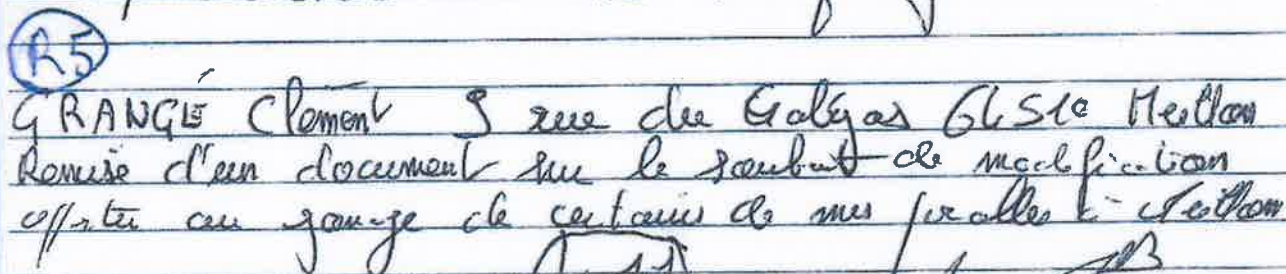 R5
GRANGÉ Clément 9 rue du Galgas 64510 Meillon
Remise d'un document sur le souhait de modification
au de certains de mes à Meillon